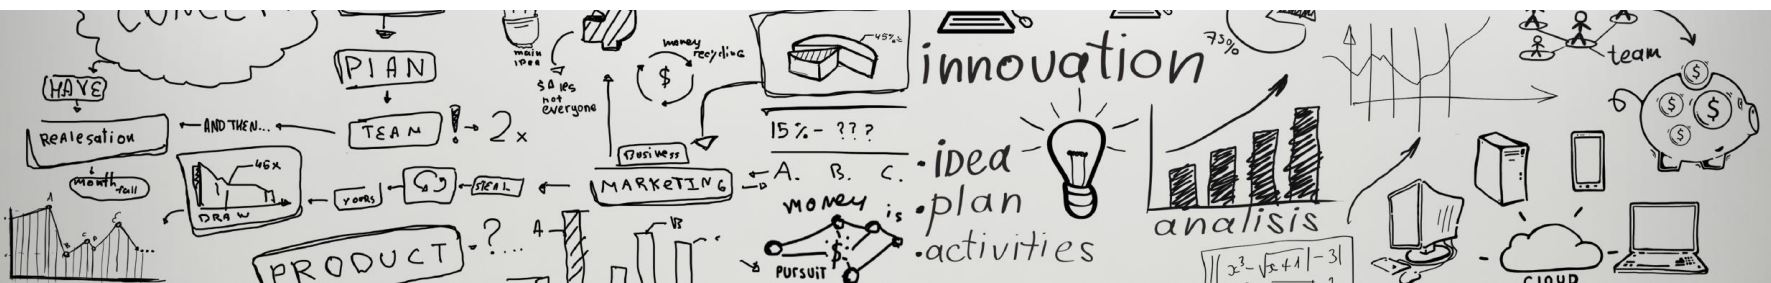 CONCEPT
HAVE
REALESATION
month fall
PLAN
AND THEN...
TEAM
! 2x
46x
DRAW
YOORS
STEAL
PRODUCT
?...
main
IDEA
SALES
not
everyone
money
recycling
$
45%
15%- ???
Business
MARKETING
A. B. C.
A
B
C
MONEY is
$
PURSUIT
innovation
•IDEA
•plan
•activities
73%
analisis
x³-√x+1|-3|
team
$
$
$
$
CLOUD
A
B
C
D
E